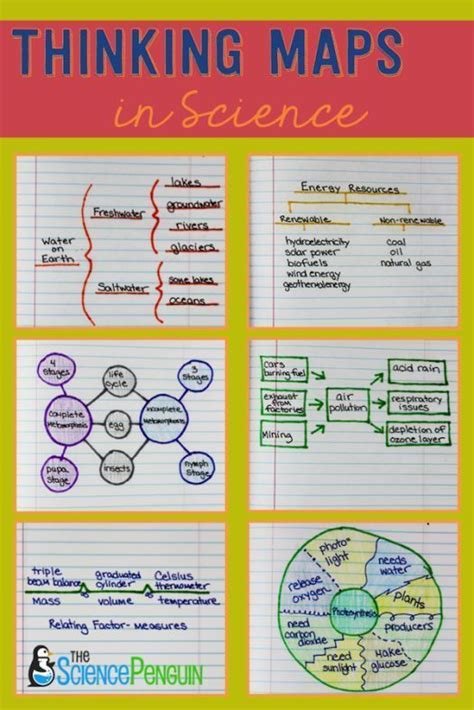 THINKING MAPS
in Science
Water
on
Earth
Freshwater
Saltwater
lakes
groundwater
rivers
glaciers
some lakes
oceans
Energy Resources
Renewable
hydroelectricity
solar power
biofuels
wind energy
geothermal energy
Non-renewable
coal
oil
natural gas
4
stages
complete
metamorphosis
pupa
stage
life
cycle
egg
insects
3
stages
incomplete
metamorphosis
nymph
stage
cars
burning fuel
exhaust
from
factories
Mining
air
pollution
acid rain
respiratory
issues
depletion of
ozone layer
triple
beam balance
mass
graduated
cylinder
volume
Celsius
thermometer
temperature
Relating Factor- measures
Photosynthesis
photo-
light
needs
water
plants
producers
Make
glucose
need
sunlight
need
carbon
dioxide
release
oxygen
THE
SCIENCEPENGUIN